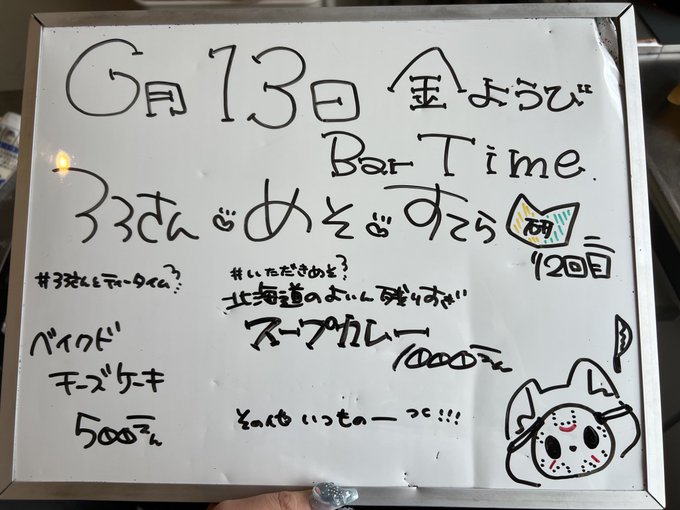 6月13日 金ようび
Bar Time
33さん めそ すてら 研
12回目
#33さんとティータイム?
#いただきめそ?
北海道のよいん残りすぎ
スープカレー
1000えん
ベイクド
チーズケーキ
500えん
その他 いつもの